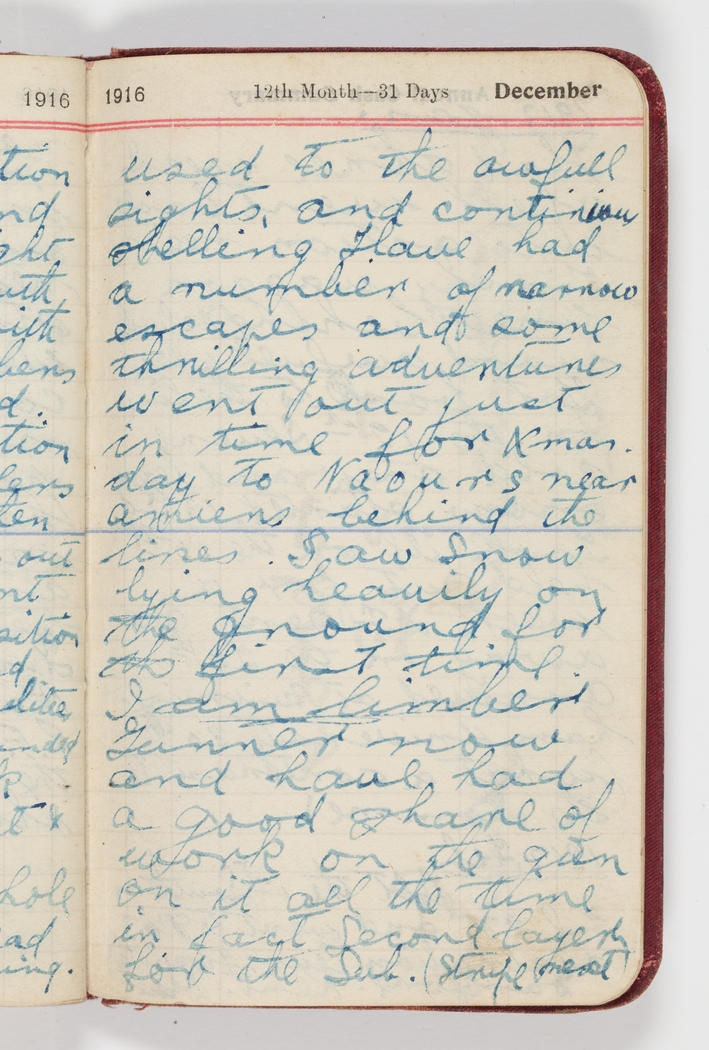 1916
1916 12th Month—31 Days December
tion
nd
ght
with
d.
tion
ten
out
nt
sition
d
k
hole
ad
ing.
used to the awfull
sights, and continious
shelling I have had
a number of narrow
escapes and some
thrilling adventures
went out just
in time for Xmas.
day to Naours near
amiens behind the
lines. Saw Snow
lying heavily on
the ground for
the first time.
I am limber
Gunner now
and have had
a good share of
work on the gun
on it all the time
in fact Second layer
for the Sub. (Stripe next)